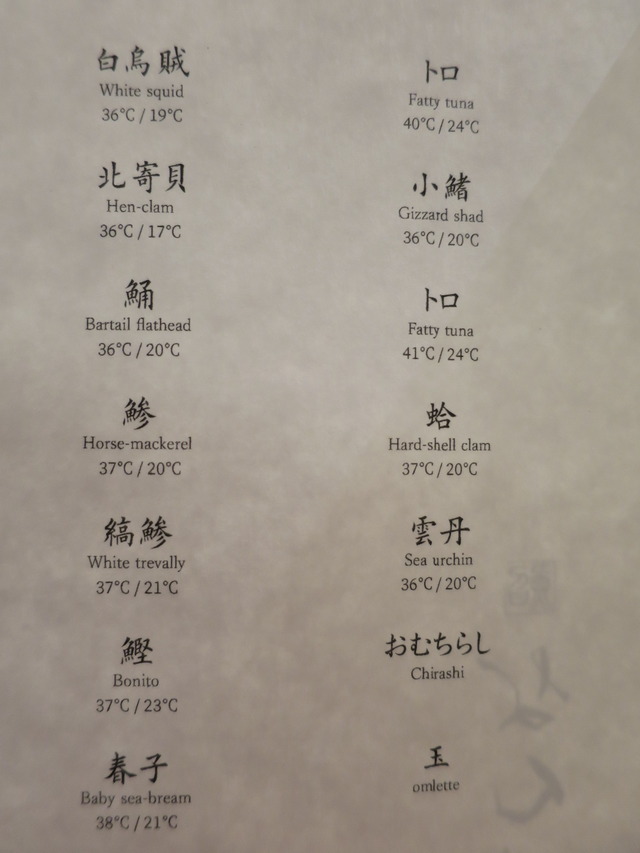 白烏賊
White squid
36℃ / 19℃
北寄貝
Hen-clam
36℃ / 17℃
鯒
Bartail flathead
36℃ / 20℃
鯵
Horse-mackerel
37℃ / 20℃
縞鯵
White trevally
37℃ / 21℃
鰹
Bonito
37℃ / 23℃
春子
Baby sea-bream
38℃ / 21℃
トロ
Fatty tuna
40℃ / 24℃
小鰭
Gizzard shad
36℃ / 20℃
トロ
Fatty tuna
41℃ / 24℃
蛤
Hard-shell clam
37℃ / 20℃
雲丹
Sea urchin
36℃ / 20℃
おむちらし
Chirashi
玉
omlette